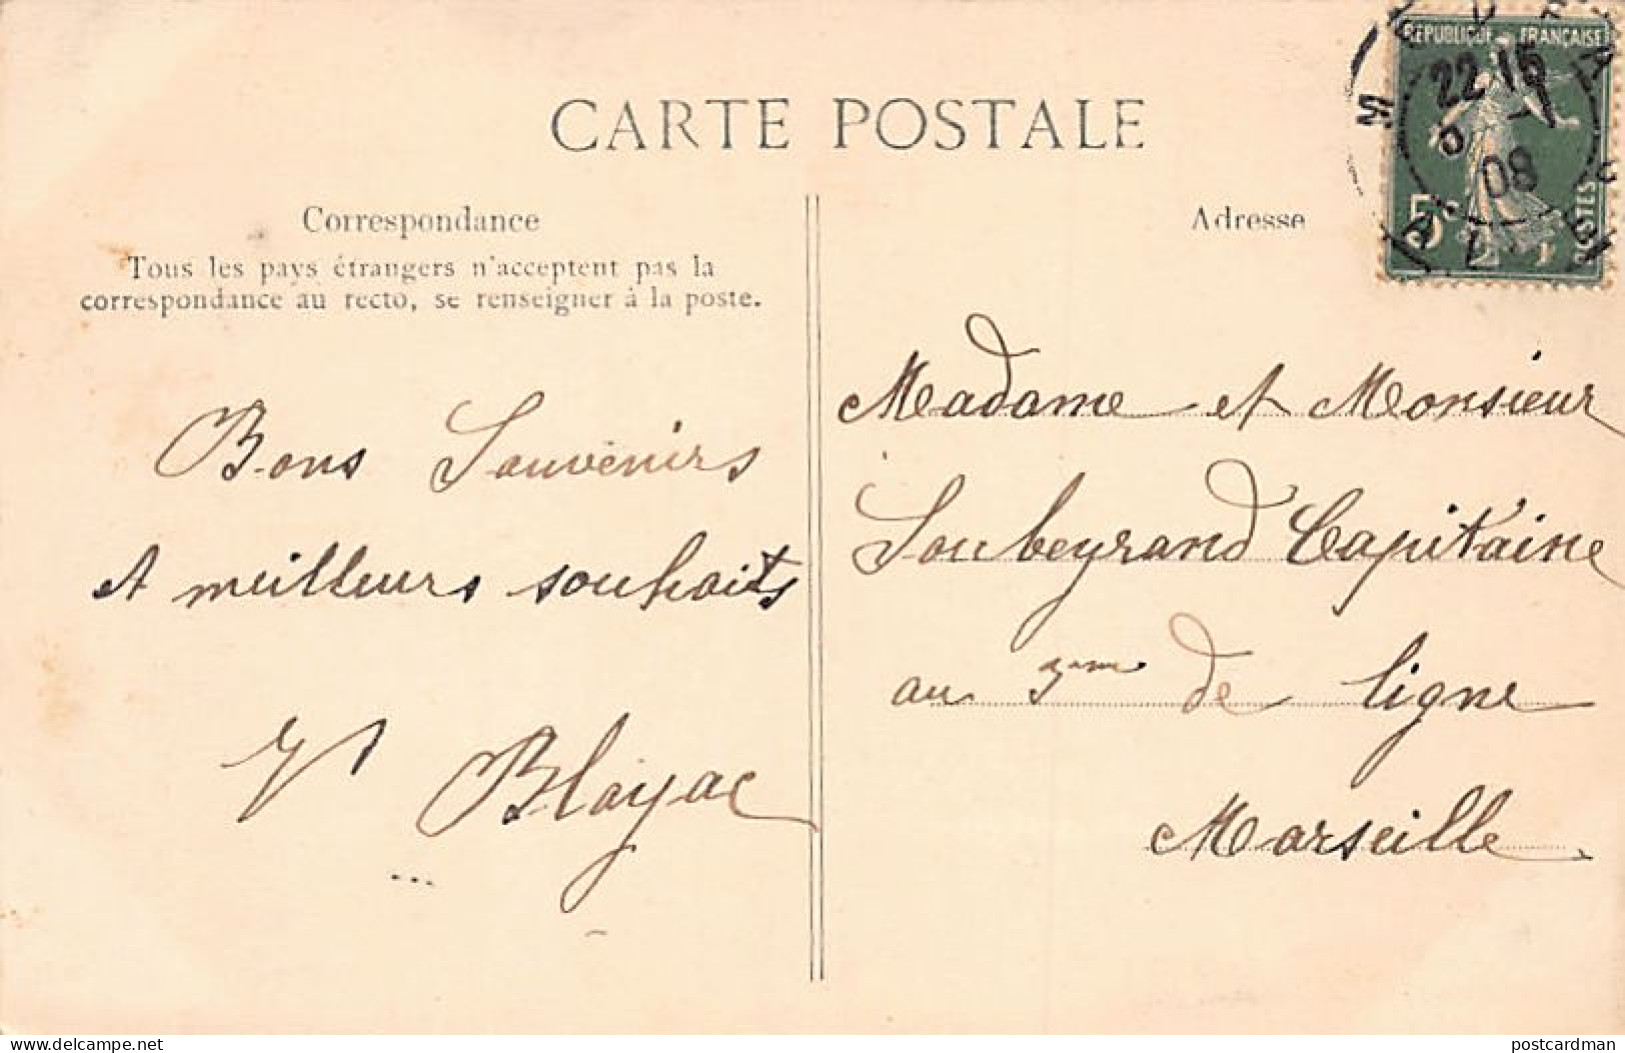 CARTE POSTALE
Correspondance
Tous les pays étrangers n'acceptent pas la
correspondance au recto, se renseigner à la poste.
Bons Souvenirs
et meilleurs souhaits
Vt Blayac
Adresse
REPUBLIQUE FRANÇAISE
22 15
08
5c
POSTES
Madame et Monsieur
Soubeyrand Capitaine
au 3me de ligne
Marseille
delcampe.net
postcardman